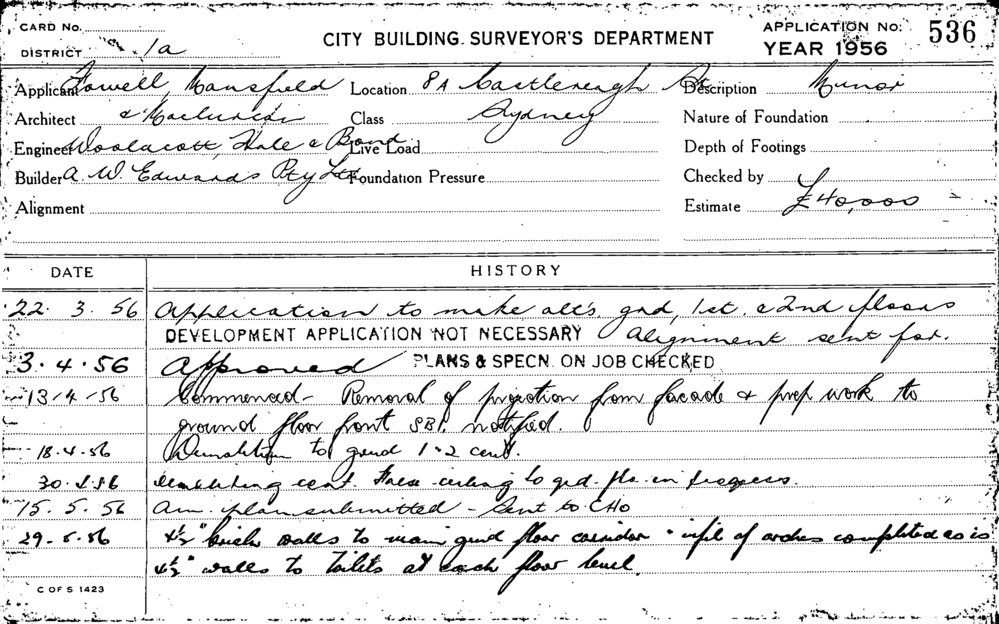 CARD No.
DISTRICT 1a
CITY BUILDING SURVEYOR'S DEPARTMENT
APPLICATION No. 536
YEAR 1956
Applicant Fowell, Mansfield Location 8A Castlereagh St Description Minor
Architect & Maclurcan Class Sydney Nature of Foundation
Engineer Woolacott, Hale & Bond Live Load Depth of Footings
Builder A. W. Edwards Pty Ltd Foundation Pressure Checked by
Alignment Estimate £40,000
DATE HISTORY
22. 3. 56 Application to make alt's grd, 1st. & 2nd floors
DEVELOPMENT APPLICATION NOT NECESSARY Alignment sent for.
3. 4. 56 Approved PLANS & SPECN. ON JOB CHECKED
13-4-56 Commenced - Removal of projection from facade & prep work to
ground floor front SBI. notified.
18.4.56 Demolition to grnd 1.2 cont.
30.4.56 cont. False ceiling to grd. flr. in progress.
15. 5. 56 Am. plan submitted - sent to CHO
29.5.56 4½" brick walls to main grnd floor corridor infil of arches completed as is
4½" walls to toilets at each floor level.
C OF S 1423